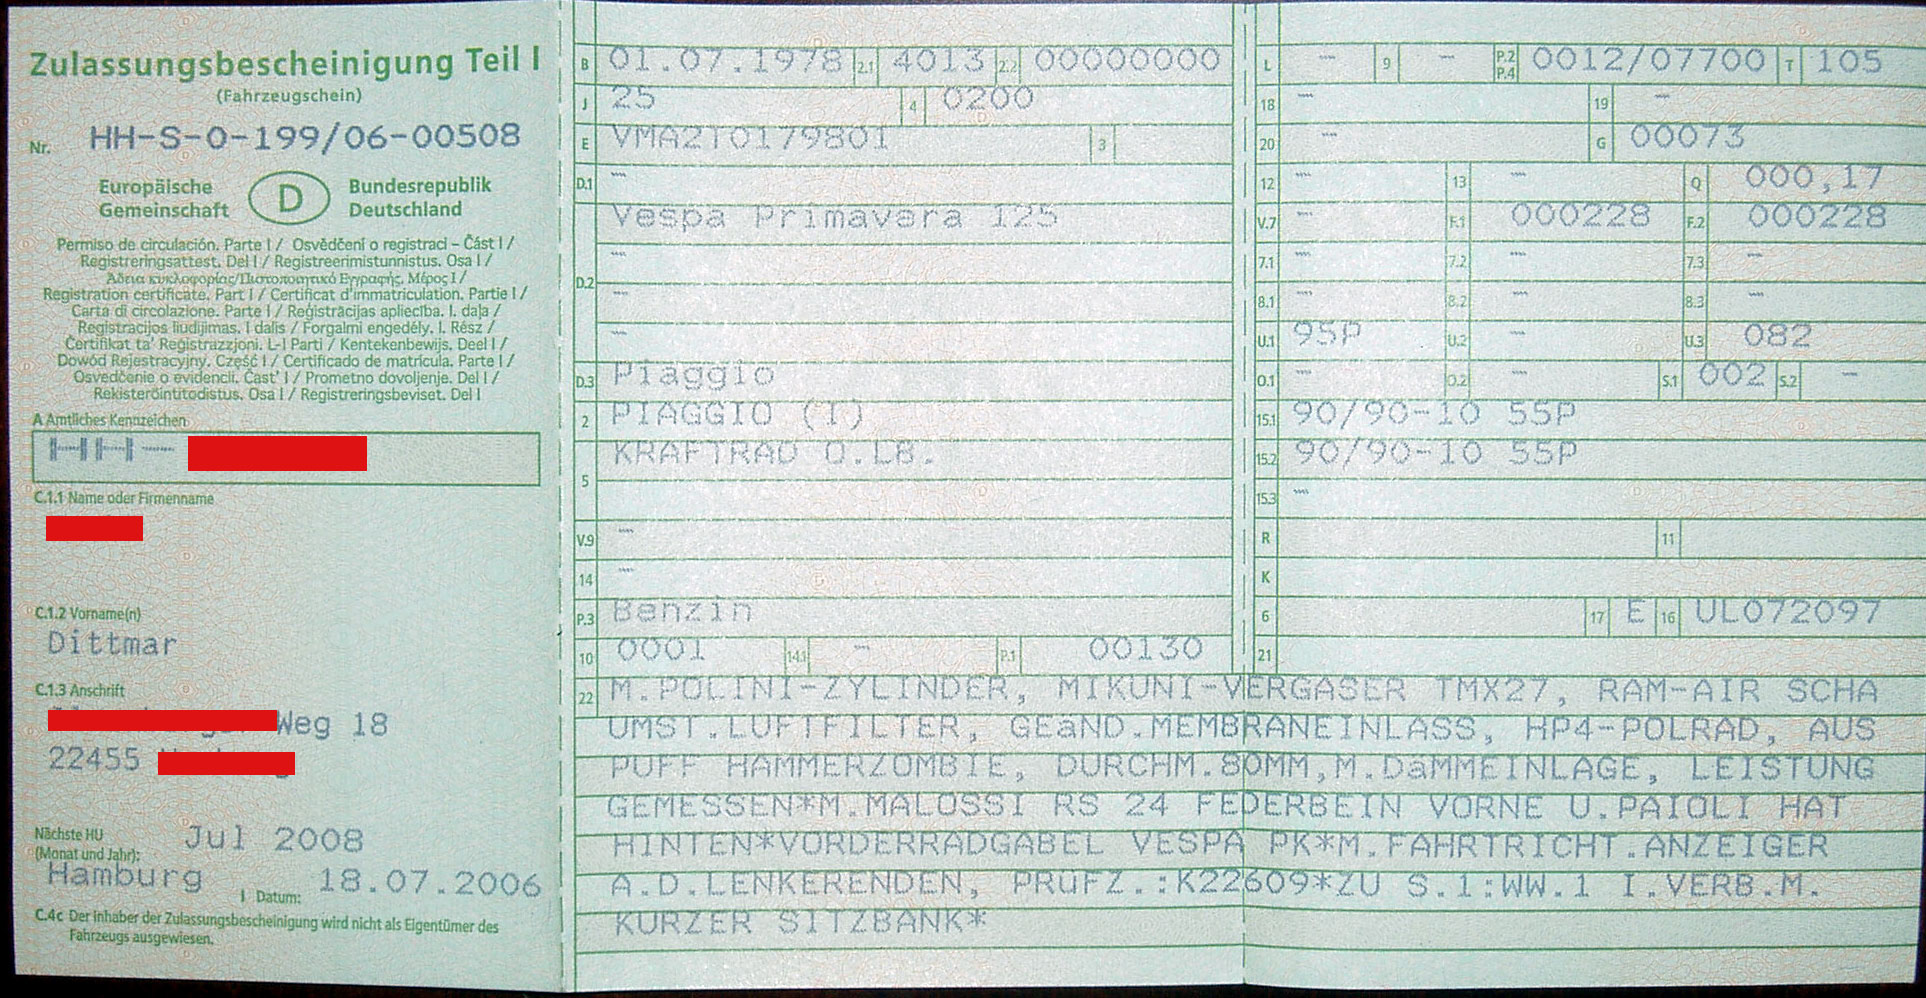 Zulassungsbescheinigung Teil I
(Fahrzeugschein)
Nr. HH-S-0-199/06-00508
Europäische Gemeinschaft D Bundesrepublik Deutschland
Permiso de circulación. Parte I / Osvědčení o registraci – Část I /
Registreringsattest. Del I / Registreerimistunnistus. Osa I /
Άδεια κυκλοφορίας/Πιστοποιητικό Εγγραφής. Μέρος I /
Registration certificate. Part I / Certificat d'immatriculation. Partie I /
Carta di circolazione. Parte I / Reģistrācijas apliecība. I. daļa /
Registracijos liudijimas. I dalis / Forgalmi engedély. I. Rész /
Ċertifikat ta' Reġistrazzjoni. L-I Parti / Kentekenbewijs. Deel I /
Dowód Rejestracyjny. Część I / Certificado de matrícula. Parte I /
Osvedčenie o evidencii. Časť I / Prometno dovoljenje. Del I /
Rekisteröintitodistus. Osa I / Registreringsbeviset. Del I
A Amtliches Kennzeichen
HH-
C.1.1 Name oder Firmenname
C.1.2 Vorname(n)
Dittmar
C.1.3 Anschrift
Weg 18
22455
Nächste HU
(Monat und Jahr): Jul 2008
Hamburg I Datum: 18.07.2006
C.4c Der Inhaber der Zulassungsbescheinigung wird nicht als Eigentümer des
Fahrzeugs ausgewiesen.
B 01.07.1978 2.1 4013 2.2 00000000
J 25 4 0200
E VMA2T0179801 3
D.1 –
Vespa Primavera 125
–
D.2
–
–
D.3 Piaggio
2 PIAGGIO (I)
KRAFTRAD O.LB.
5
V.9 –
14 –
P.3 Benzin
10 0001 14.1 – P.1 00130
L – 9 – P.2 P.4 0012/07700 T 105
18 – 19 –
20 – G 00073
12 – 13 – Q 000,17
V.7 – F.1 000228 F.2 000228
7.1 – 7.2 – 7.3 –
8.1 – 8.2 – 8.3 –
U.1 95P U.2 – U.3 082
O.1 – O.2 – S.1 002 S.2 –
15.1 90/90-10 55P
15.2 90/90-10 55P
15.3 –
R 11
K
6 17 E 16 UL072097
21
22 M.POLINI-ZYLINDER, MIKUNI-VERGASER TMX27, RAM-AIR SCHA
UMST.LUFTFILTER, GEäND.MEMBRANEINLASS, HP4-POLRAD, AUS
PUFF HAMMERZOMBIE, DURCHM.80MM,M.DäMMEINLAGE, LEISTUNG
GEMESSEN*M.MALOSSI RS 24 FEDERBEIN VORNE U.PAIOLI HAT
HINTEN*VORDERRADGABEL VESPA PK*M.FAHRTRICHT.ANZEIGER
A.D.LENKERENDEN, PRüFZ.:K22609*ZU S.1:WW.1 I.VERB.M.
KURZER SITZBANK*